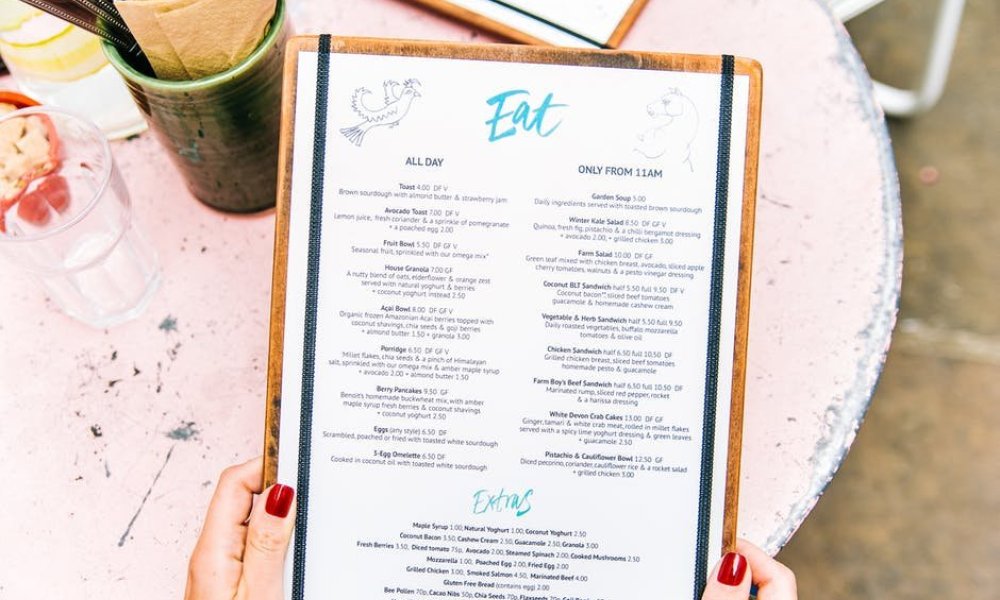 Eat
ALL DAY
Toast 4.00 DF V
Brown sourdough with almond butter & strawberry jam
Avocado Toast 7.00 DF V
Lemon juice, fresh coriander & a sprinkle of pomegranate
+ a poached egg 2.00
Fruit Bowl 5.50 DF GF V
Seasonal fruit, sprinkled with our omega mix*
House Granola 7.00 GF
A nutty blend of oats, elderflower & orange zest
served with natural yoghurt & berries
+ coconut yoghurt instead 2.50
Açai Bowl 8.00 DF GF V
Organic frozen Amazonian Açai berries topped with
coconut shavings, chia seeds & goji berries
+ almond butter 1.50 + granola 3.00
Porridge 6.50 DF GF V
Millet flakes, chia seeds & a pinch of Himalayan
salt, sprinkled with our omega mix & amber maple syrup
+ avocado 2.00 + almond butter 1.50
Berry Pancakes 9.50 GF
Benoit's homemade buckwheat mix, with amber
maple syrup fresh berries & coconut shavings
+ coconut yoghurt 2.50
Eggs (any style) 6.50 DF
Scrambled, poached or fried with toasted white sourdough
3-Egg Omelette 6.50 DF
Cooked in coconut oil with toasted white sourdough
ONLY FROM 11AM
Garden Soup 5.00
Daily ingredients served with toasted brown sourdough
Winter Kale Salad 8.50 DF GF V
Quinoa, fresh fig, pistachio & a chilli bergamot dressing
+ avocado 2.00, + grilled chicken 3.00
Farm Salad 10.00 DF GF
Green leaf mixed with chicken breast, avocado, sliced apple
cherry tomatoes, walnuts & a pesto vinegar dressing
Coconut BLT Sandwich half 5.50 full 9.50 DF V
Coconut bacon**, sliced beef tomatoes
guacamole & homemade cashew cream
Vegetable & Herb Sandwich half 5.50 full 9.50
Daily roasted vegetables, buffalo mozzarella
tomatoes & olive oil
Chicken Sandwich half 6.50 full 10.50 DF
Grilled chicken breast, sliced beef tomatoes
homemade pesto & guacamole
Farm Boy's Beef Sandwich half 6.50 full 10.50 DF
Marinated rump, sliced red pepper, rocket
& a harissa dressing
White Devon Crab Cakes 13.00 DF GF
Ginger, tamari & white crab meat, rolled in millet flakes
served with a spicy lime yoghurt dressing & green leaves
+ guacamole 2.50
Pistachio & Cauliflower Bowl 12.50 GF
Diced pecorino, coriander, cauliflower rice & a rocket salad
+ grilled chicken 3.00
Extras
Maple Syrup 1.00, Natural Yoghurt 1.00, Coconut Yoghurt 2.50
Coconut Bacon 3.50, Cashew Cream 2.50, Guacamole 2.50, Granola 3.00
Fresh Berries 3.50, Diced tomato 75p, Avocado 2.00, Steamed Spinach 2.00, Cooked Mushrooms 2.50
Mozzarella 1.00, Poached Egg 2.00, Fried Egg 2.00
Grilled Chicken 3.00, Smoked Salmon 4.50, Marinated Beef 4.00
Gluten Free Bread (contains egg) 2.00
Bee Pollen 70p, Cacao Nibs 50p, Chia Seeds 70p, Flaxseeds 70p,